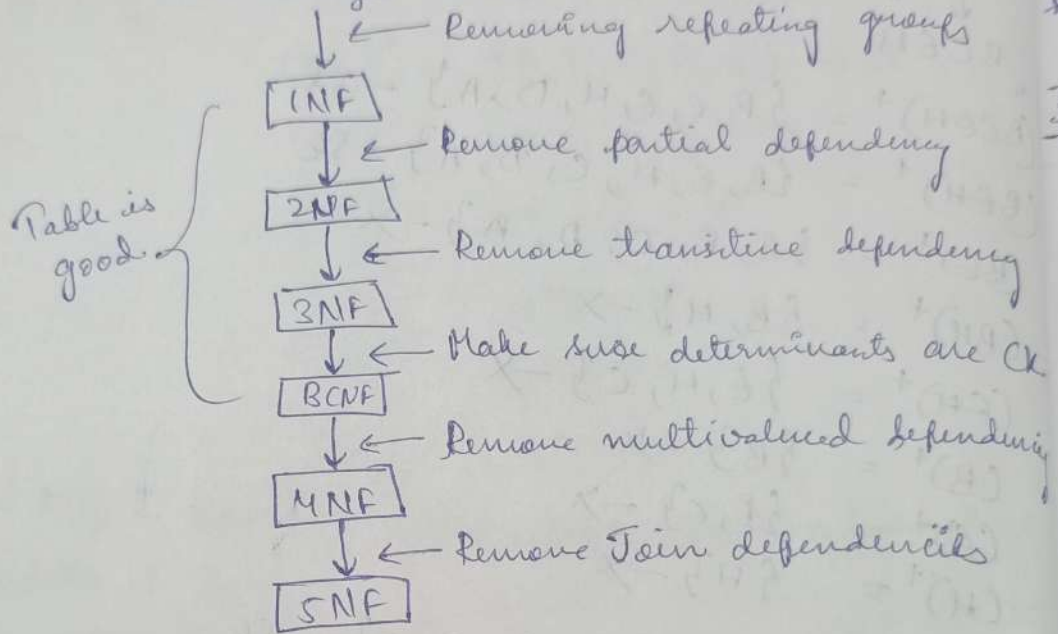 Removing repeating groups
1NF
Remove partial dependency
2NF
Table is
good.
Remove transitive dependency
3NF
Make sure determinants are CK
BCNF
Remove multivalued dependency
4NF
Remove Join dependencies
5NF